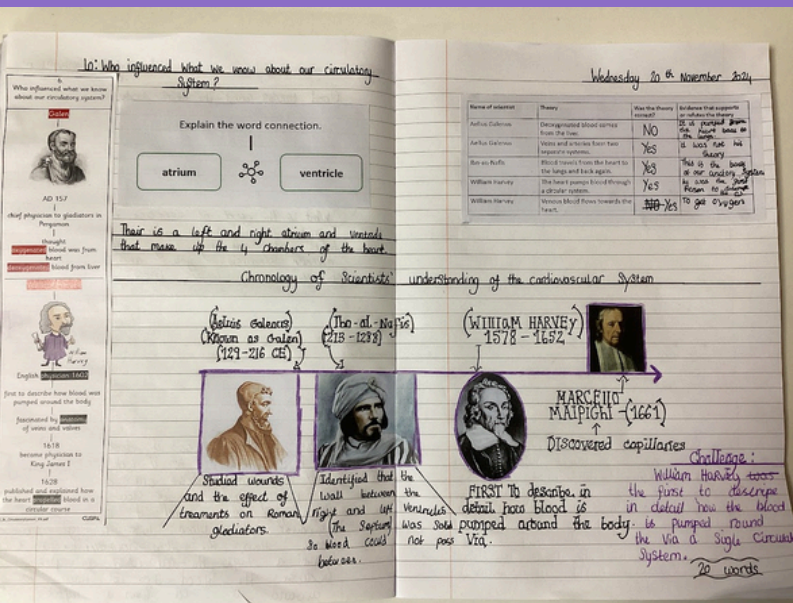 lo: Who influenced what we know about our circulatory
System?
Wednesday 20th November 2024
6.
Who influenced what we know
about our circulatory system?
Galen
AD 157
chief physician to gladiators in
Pergamon
thought
oxygenated blood was from
heart
deoxygenated blood from liver
William
Harvey
English physician 1602
first to describe how blood was
pumped around the body
fascinated by anatomy
of veins and valves
1618
became physician to
King James I
1628
published and explained how
the heart propelled blood in a
circular course
CUSP
Explain the word connection.
atrium
ventricle
Their is a left and right atrium and ventricle
that make up the 4 chambers of the heart.
Name of scientist Theory Was the theory correct? Evidence that supports or refutes the theory
Aelius Galenus Deoxygenated blood comes from the liver. NO It is pumped from the heart back to the lungs.
Aelius Galenus Veins and arteries form two separate systems. Yes it was not his theory
Ibn-an-Nafis Blood travels from the heart to the lungs and back again. Yes This is the body of our system
William Harvey The heart pumps blood through a circular system. Yes he was the first Person to
William Harvey Venous blood flows towards the heart. NO Yes To get oxygen
Chronology of Scientists' understanding of the cardiovascular System
(Aelius Galenus)
(Known as Galen)
(129-216 CE)
(Ibn-al-Nafis)
(1213-1288)
(WILLIAM HARVEY)
1578-1652
MARCELLO
MALPIGHI-(1661)
Discovered capillaries
Studied wounds
and the effect of
treaments on Roman
gladiators.
Identified that the
wall between the
right and left ventricles
(The Septum) was Solid
So blood could not pass
between.
FIRST To describe in
detail how blood is
pumped around the body.
Via.
Challenge:
William Harvey was
the first to descripe
in detail how the blood
is pumped round
the Via a Sigle Circular
System.
20 words